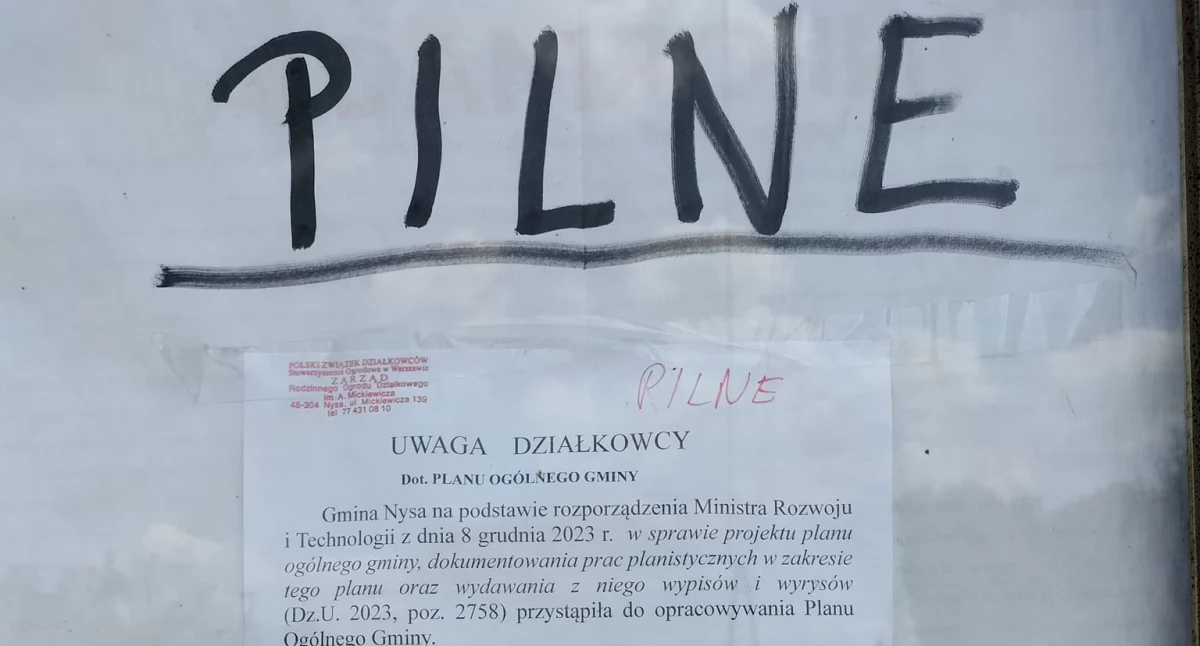 PILNE
POLSKI ZWIĄZEK DZIAŁKOWCÓW
Stowarzyszenie Ogrodowe w Warszawie
ZARZĄD
Rodzinnego Ogrodu Działkowego
im. A. Mickiewicza
48-304 Nysa, ul. Mickiewicza 139
tel 77 431 08 10
PILNE
UWAGA DZIAŁKOWCY
Dot. PLANU OGÓLNEGO GMINY
Gmina Nysa na podstawie rozporządzenia Ministra Rozwoju
i Technologii z dnia 8 grudnia 2023 r. w sprawie projektu planu
ogólnego gminy, dokumentowania prac planistycznych w zakresie
tego planu oraz wydawania z niego wypisów i wyrysów
(Dz.U. 2023, poz. 2758) przystąpiła do opracowywania Planu
Ogólnego Gminy.